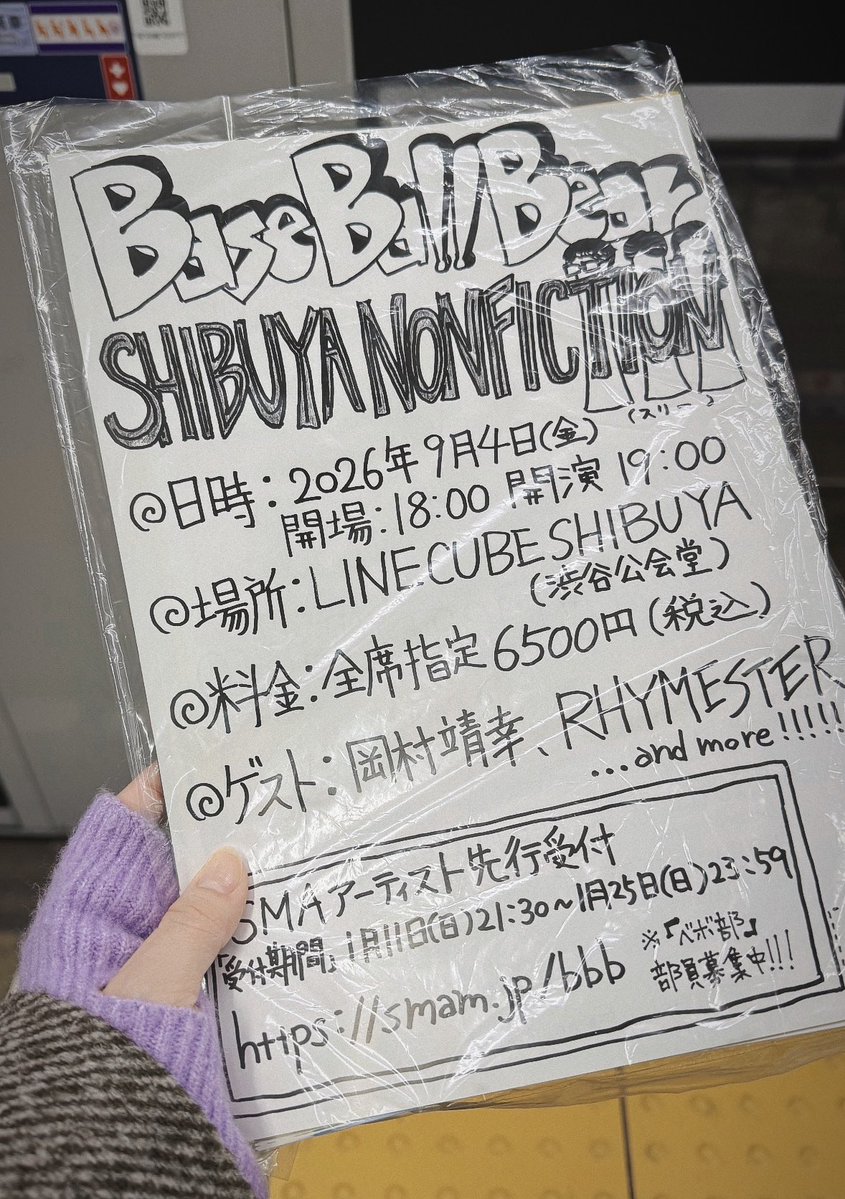 Base Ball Bear
SHIBUYA NONFICTION
(スリー)
@日時:2026年9月4日(金)
開場:18:00 開演 19:00
@場所:LINE CUBE SHIBUYA
(渋谷公会堂)
@料金:全席指定 6500円(税込)
@ゲスト:岡村靖幸、RHYMESTER
...and more!!!!!
SMAアーティスト先行受付
「受付期間」1月11日(日)21:30~1月25日(日)23:59
https://smam.jp/bbb
※『ベボ部』
部員募集中!!!